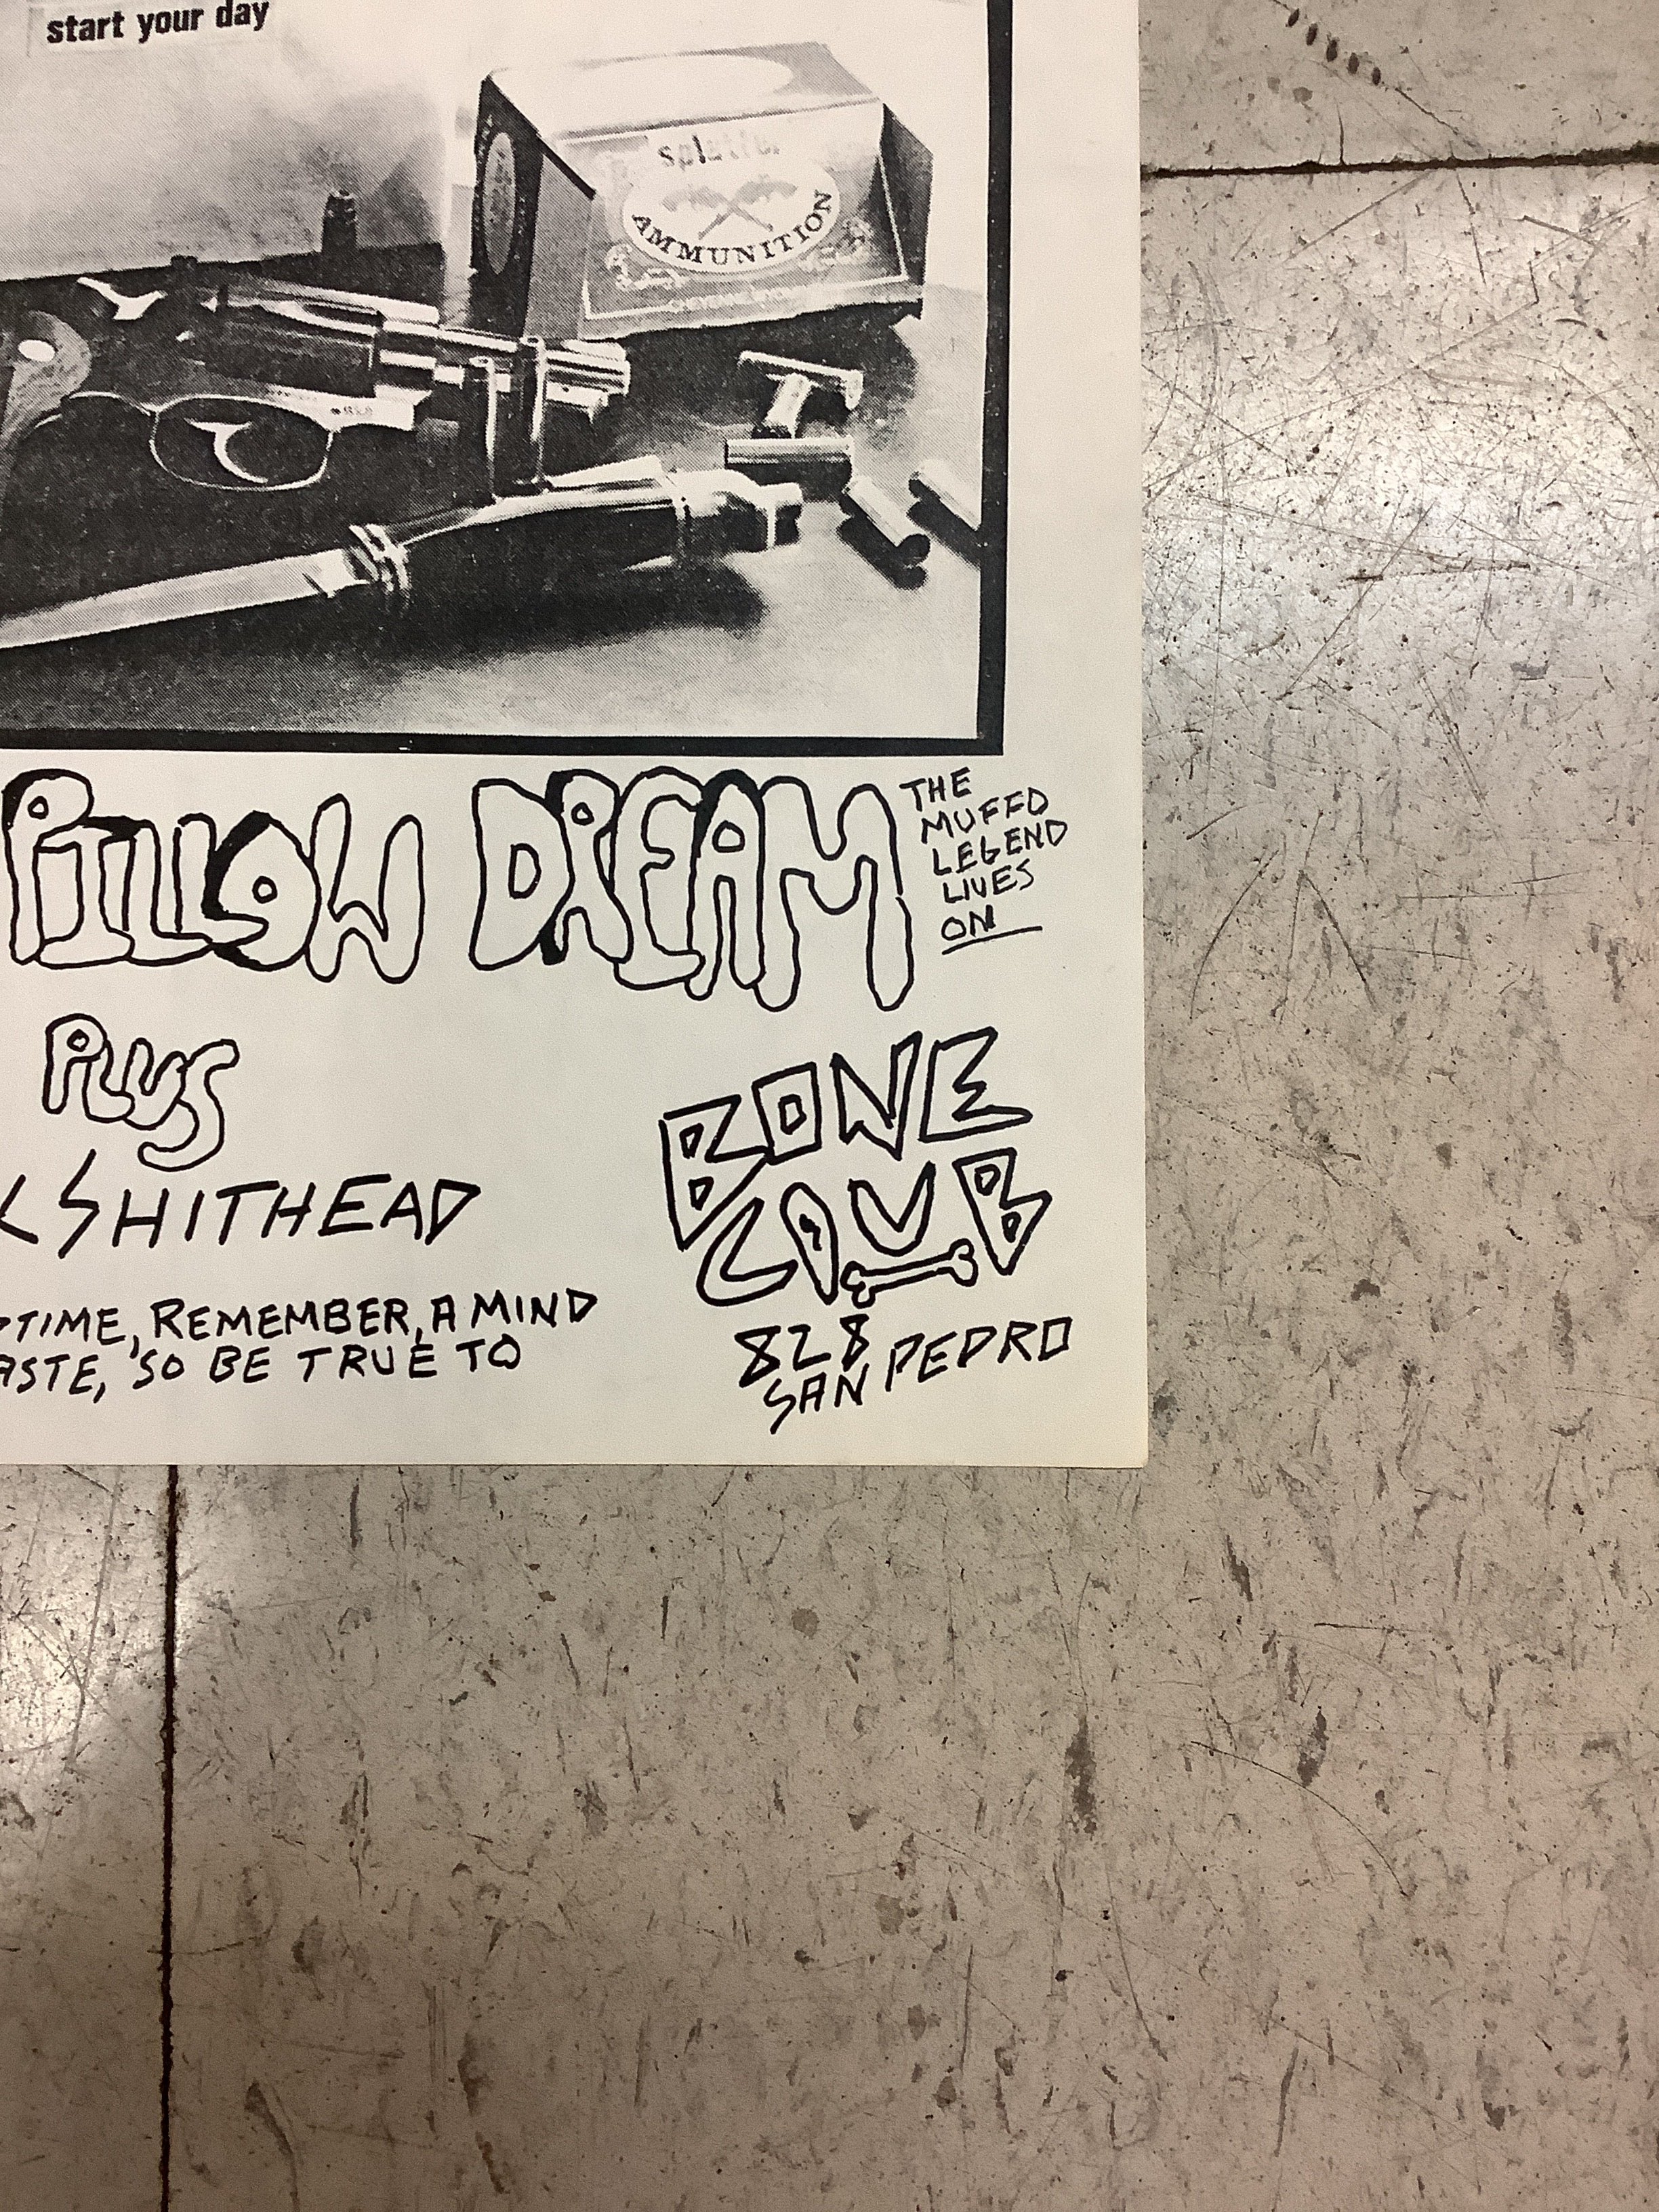 start your day
splatter
AMMUNITION
PILLOW DREAM
THE
MUFFO
LEGEND
LIVES
ON
PLUS
K SHITHEAD
PTIME, REMEMBER, A MIND
ASTE, SO BE TRUE TO
BONE
CLUB
828
SAN PEDRO